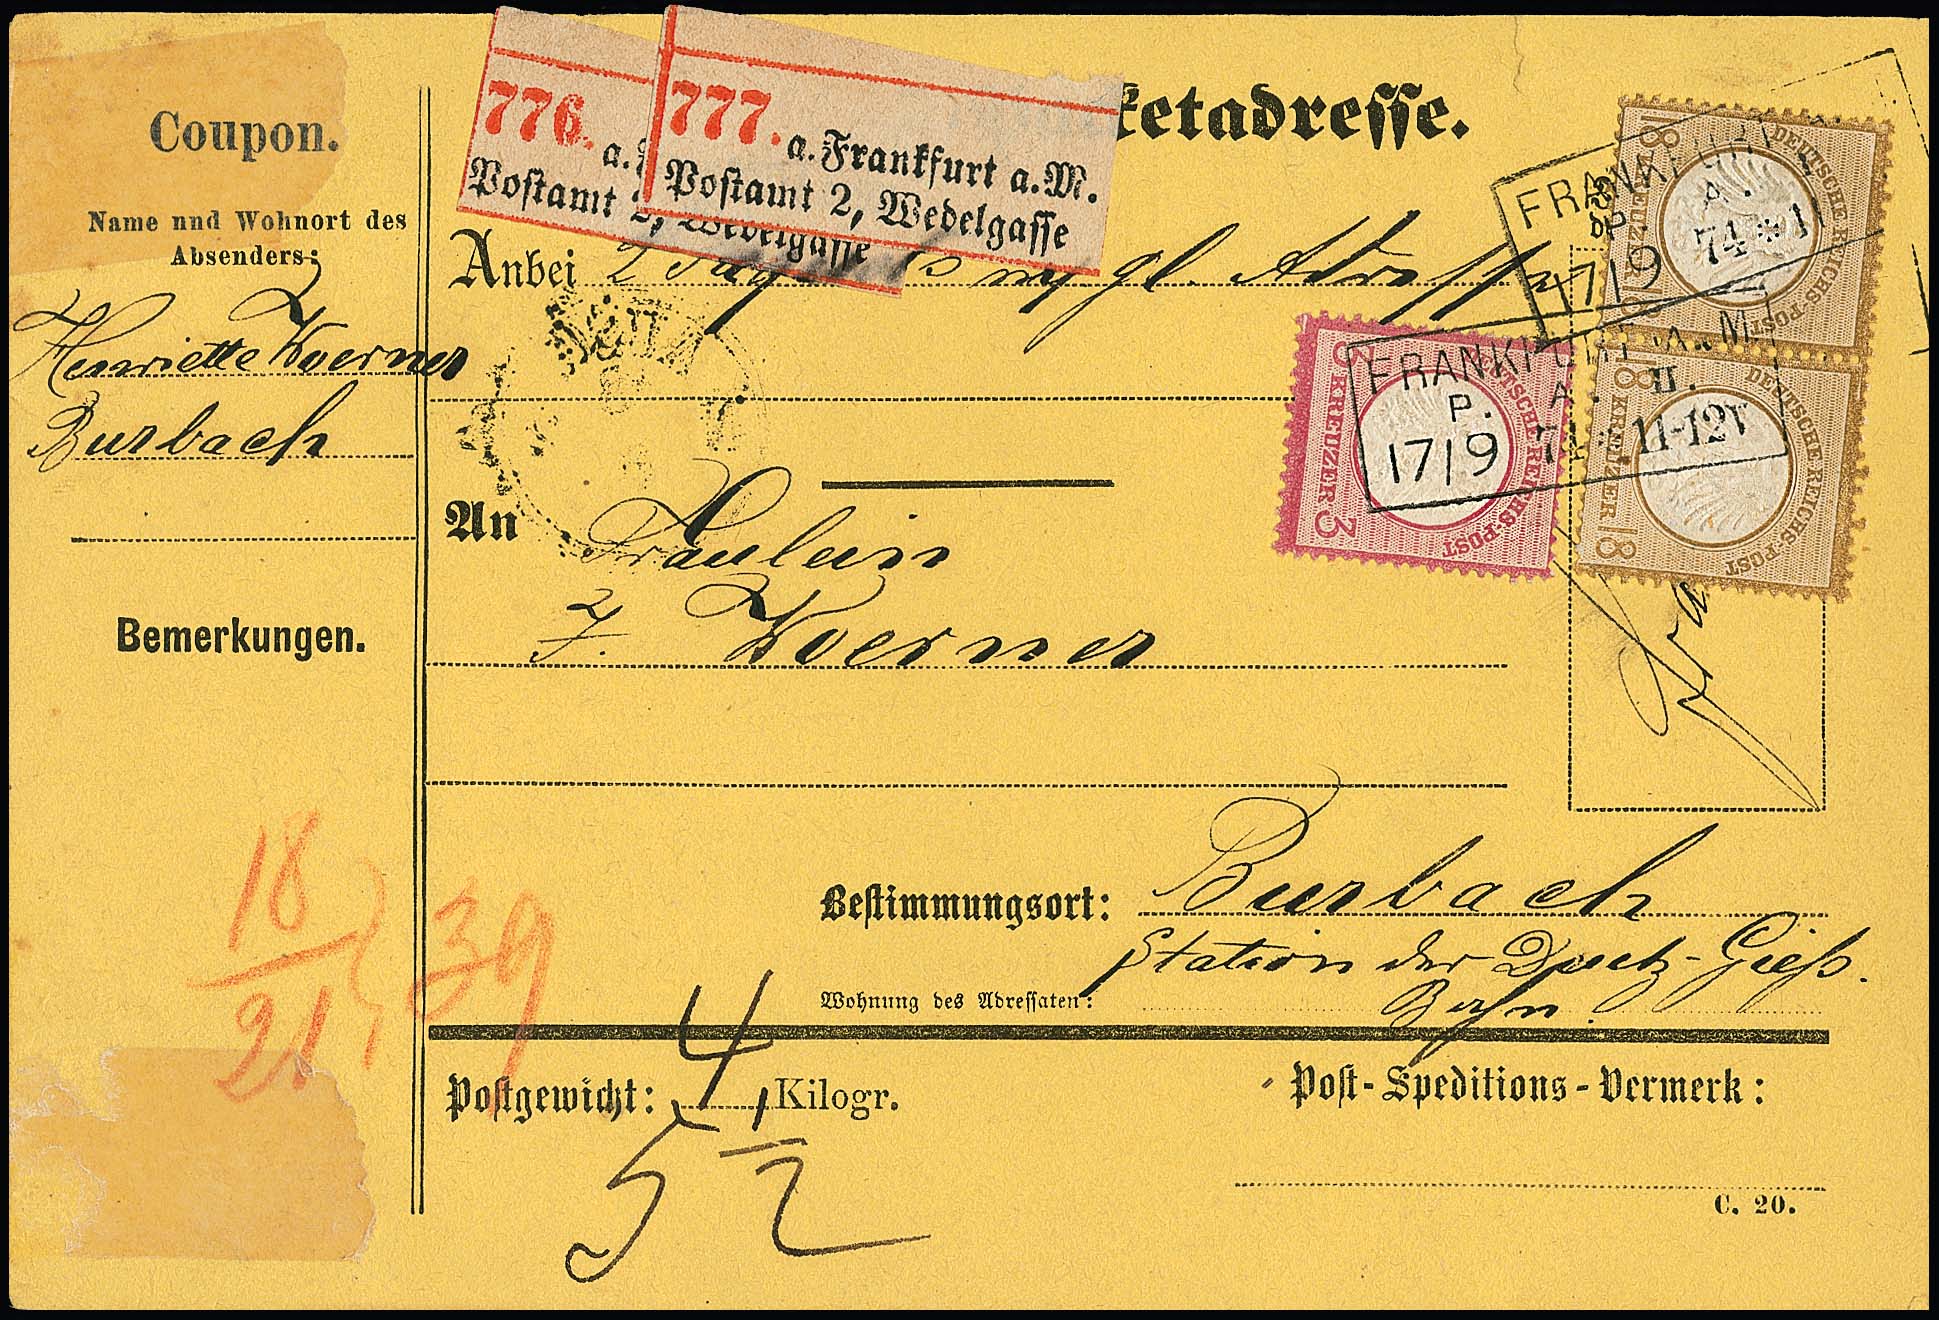 Coupon.
Name nnd Wohnort des
Absenders:
Henriette Woerner
Burbach
Bemerkungen.
18
21
39
776. a.
Postamt 2, Wedelgasse
777. a. Frankfurt a. M.
Postamt 2, Wedelgasse
ketadresse.
Anbei 2
An Fräulein
F. Woerner
Bestimmungsort: Burbach
Station der Deutz-Giess.
Wohnung des Adressaten: Bahn.
Postgewicht: 4 Kilogr.
5 1/2
Post-Speditions-Vermerk:
C. 20.
DEUTSCHE REICHS-POST
18 KREUZER 18
DEUTSCHE REICHS-POST
18 KREUZER 18
DEUTSCHE REICHS-POST
3 KREUZER 3
FRANKFURT
17/9 74 * 1
FRANKFURT A. M.
P. A. II.
17/9 74 * 11-12V